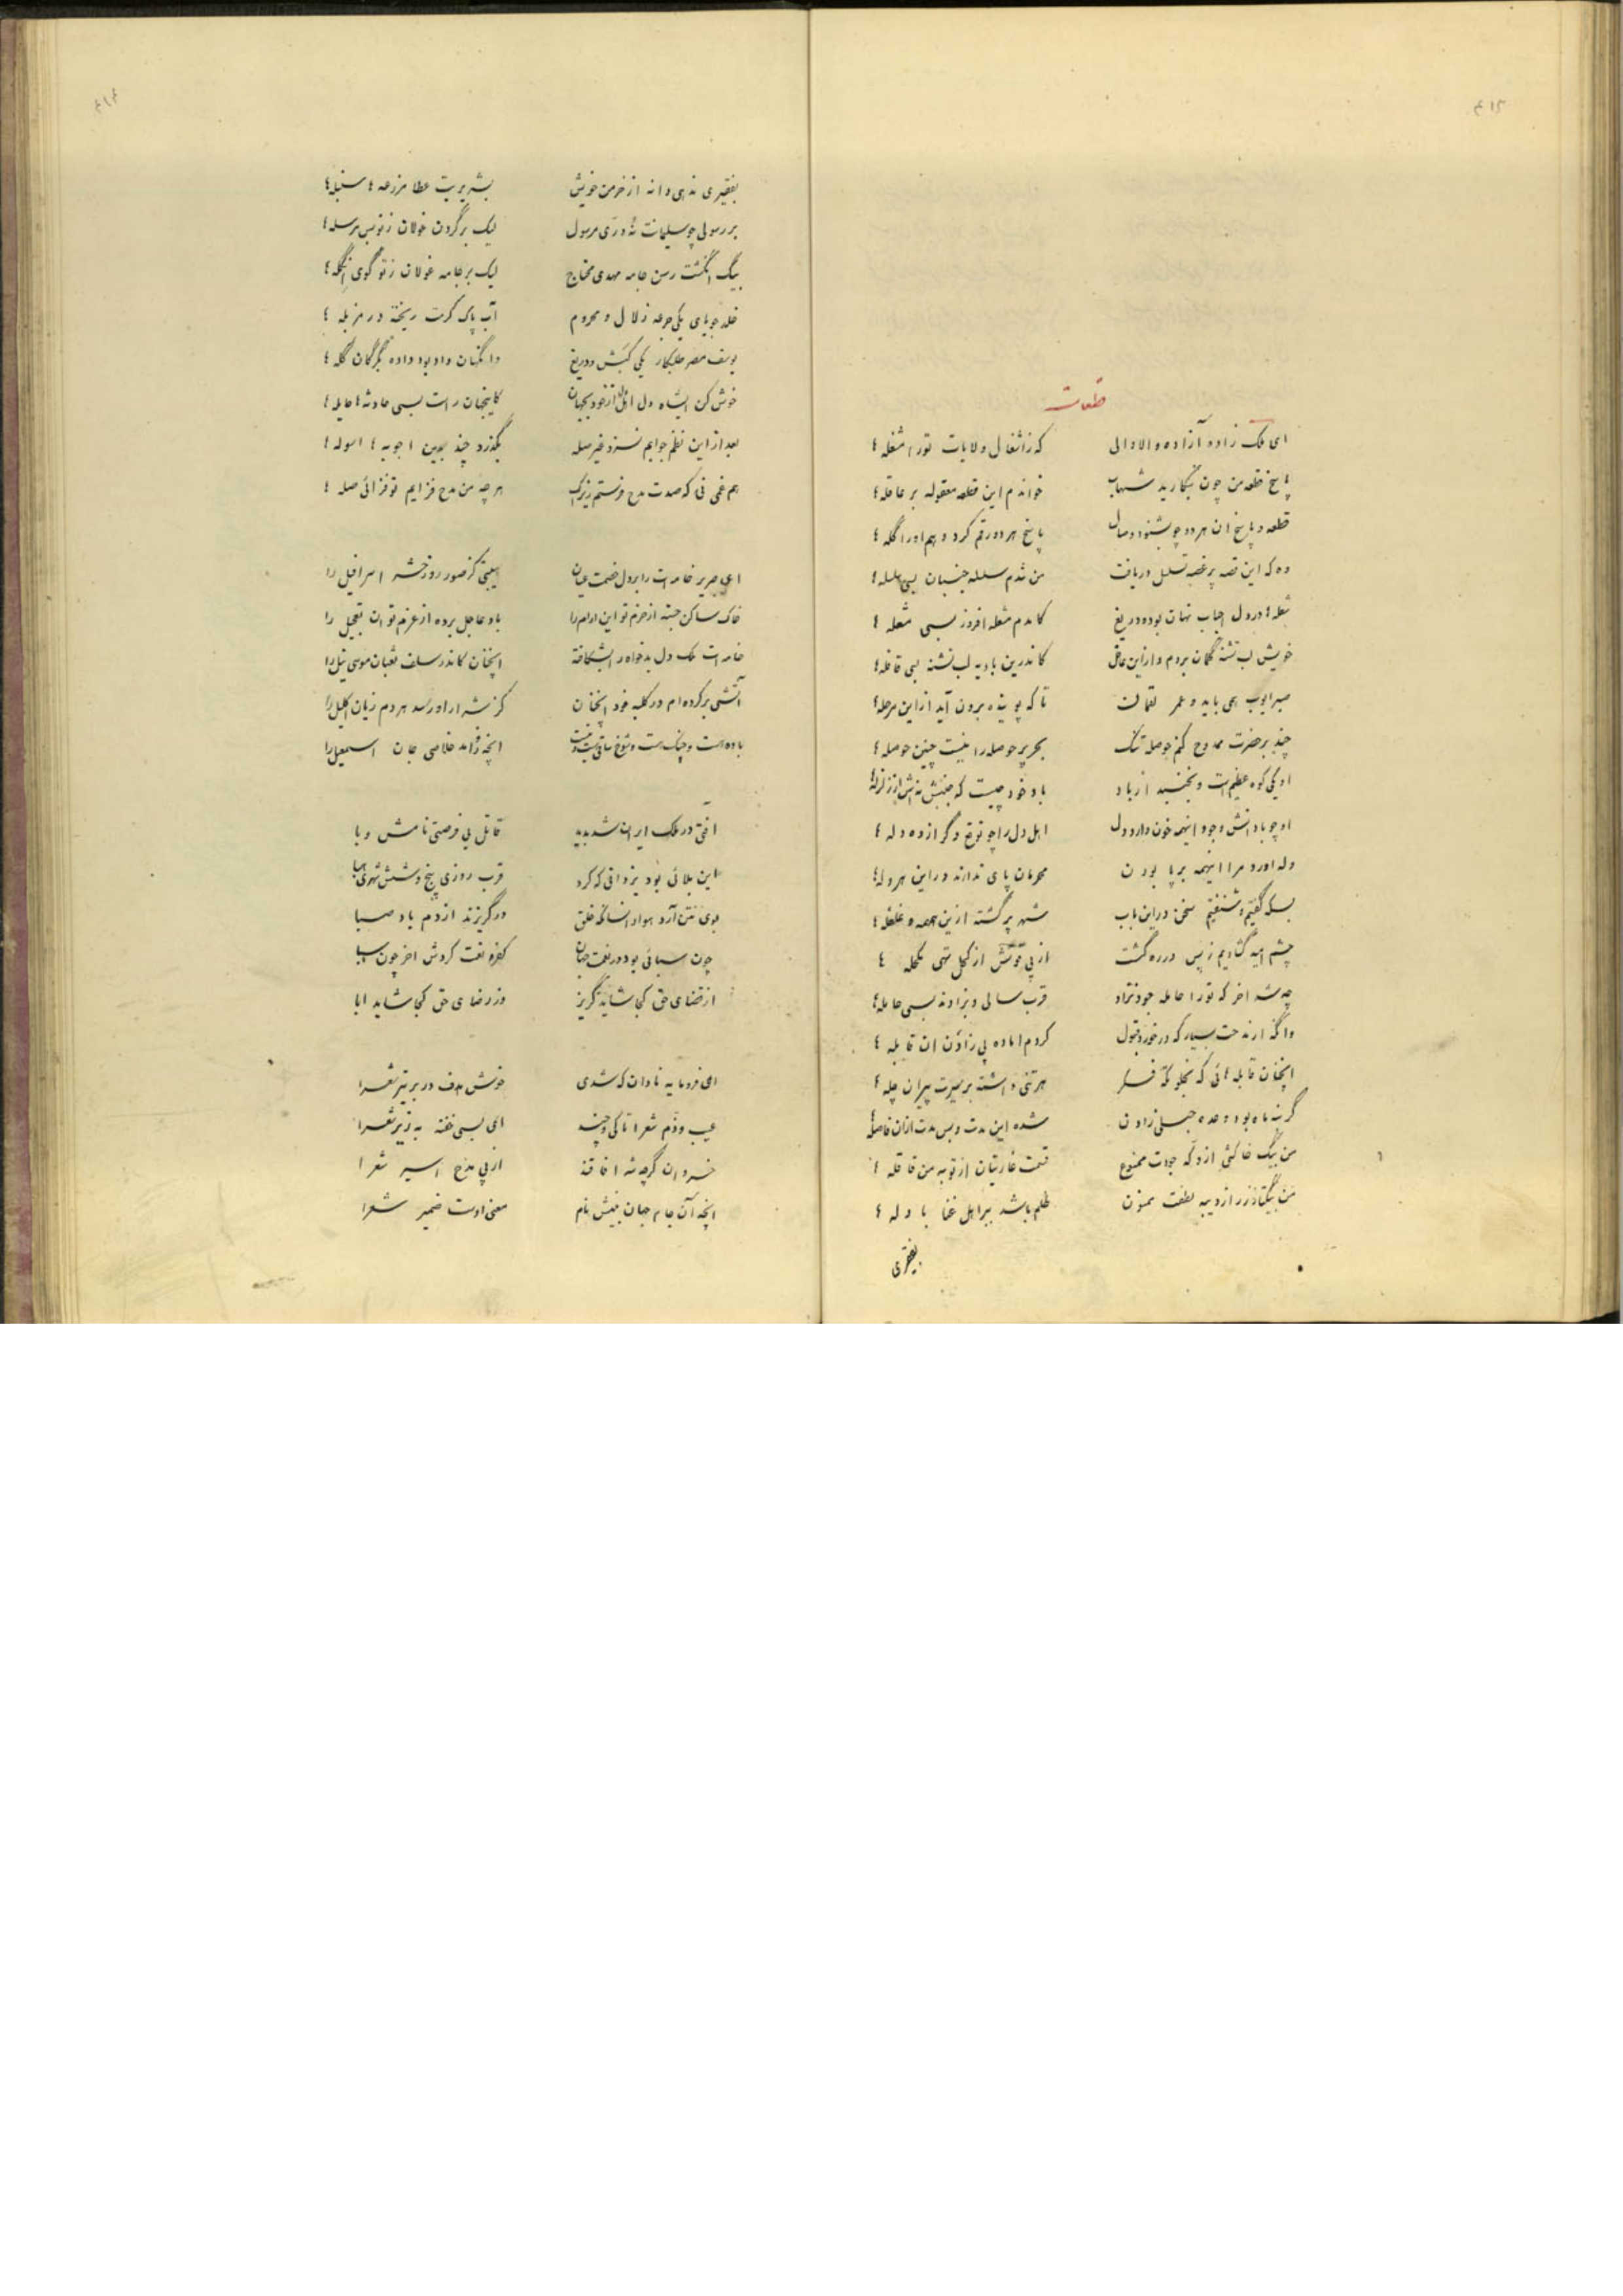 قطعات
ای ملک زاده آزاده والا والی که ز اشغال ولایات تو را مشغله ها
پاسخ قطعه من چون بنگارید شهاب خواندم این قطعه معقوله بر عاقله ها
قطعه و پاسخ ان هر دو چو بشنود وصال پاسخ هر دو رقم کرد و هم او را گله ها
وه که این قصه پر غصه تسلسل دریافت من شدم سلسله جنبان بسی سلسله ها
شعله ها در دل احباب نهان بوده دریغ کامدم مشعله افروز بسی مشعله ها
خویش لب تشنه گمان بردم و از این غافل کاندرین بادیه لب تشنه بسی قافله ها
صبر ایوب همی باید و عمر لقمانت تا که پوینده برون آید از این مرحله ها
چند بر حضرت ممدوح کنم حوصله تنگ بحر پر حوصله را نیست چنین حوصله ها
او یکی کوه عظیم است و نجنبد از باد باد خود چیست که جنبش نه اش از زلزله ها
او چو با دانش و جود اینهمه خون دارد دل اهل دل را چو توقع دگر از ده دله ها
وله اورد مرا اینهمه بر پا بودن محرمان پای ندارند در این هروله ها
بسکه گفتیم و شنفتیم سخن در این باب شهر پر گشته ازین همهمه و غلغله ها
چشم امید گشادیم ز پس در ره گشت از پی قوتش از کحل تهی مکحله ها
چه شد اخر که تو را حامله جود نزاد قرب سالی و بزادند بسی حامله ها
کردم اماده پی زادن ان قابله ها
انچنان قابله هائی که بخلوتگه فکر هر تنی داشته بر سیرت پیران چله ها
گر نه ماه بود وعده حبلی زادن شده این مدت و بس مدت ازان فاصله ها
من بیک خاکش از درگه جودت ممنوع قسمت غارتیان از تو به من قافله ها
ظلم باشد ببر اهل غنا با وله ها
بفقیری
بفقیری ندهی دانه از خرمن خویش بشریریت عطا مزرعه ها سنبله ها
بر رسولی چو سلیمانت نه دری مرسول لیک بر گردن غولان ز تو بس مرسله ها
بیک انگشت رسن جامه مهدی محتاج لیک بر جامه غولان ز تو گوی انگله ها
خلد جویای یکی جرعه زلال و محروم آب پاک کرمت ریخته در مزبله ها
یوسف مصر طلبکار یکی کبش و دریغ وانگهان داد بود داده بگرگان گله ها
خوش کن ایشاه دل اهل دل از خود بجهان کاینجهان راست بسی حادثه ها حایله ها
بعد از این نظم جوابم نسزد غیر صله بگذرد چند بدین اجوبه ها اسوله ها
هم غمی نی که صدت مدح فرستم زیراک هر چه من مدح فزایم تو فزائی صله ها
ای صریر خامه ات را بر دل خصمت عیان هیبتی کز صور روز حشر اسرافیل را
خاک ساکن جسته از حزم تو این ارام را باد عاجل برده از عزم تو ان تعجیل را
خامه ات یک دل بدخواه را بشکافته انچنان کاندر سلف ثعبان موسی نیل را
آتشی بر کرده ام در کلبه خود انچنان کز شرار او رسد هر دم زیان اکلیل را
باده هست و چنگ هست و شوخ ساقی نیست انچه زو امد خلاصی جان اسمعیل را
افتی در ملک ایران شد پدید قاتل بی فرصتی نامش وبا
این بلائی بود یزدانی که کرد قرب روزی پنج و شش شهری هبا
بوی نتن آرد هوا و انسانکه خلق در گریزند از دم باد صبا
چون سبائی بود در نعمت جهان کفره نعمت کردش اخر چون سبا
از قضای حق کجا شاید گریز وز رضای حق کجا شاید ابا
ای فرومایه نادان که شدی خوش هدف در بر تیر شعرا
عیب و ذم شعرا تا کی و چند ای بسی خفته به زیر شعرا
خسروان گرچه شه افاقند از پی مدح اسیر شعرا
انچه آن جام جهان بینش نام معنی اوست ضمیر شعرا